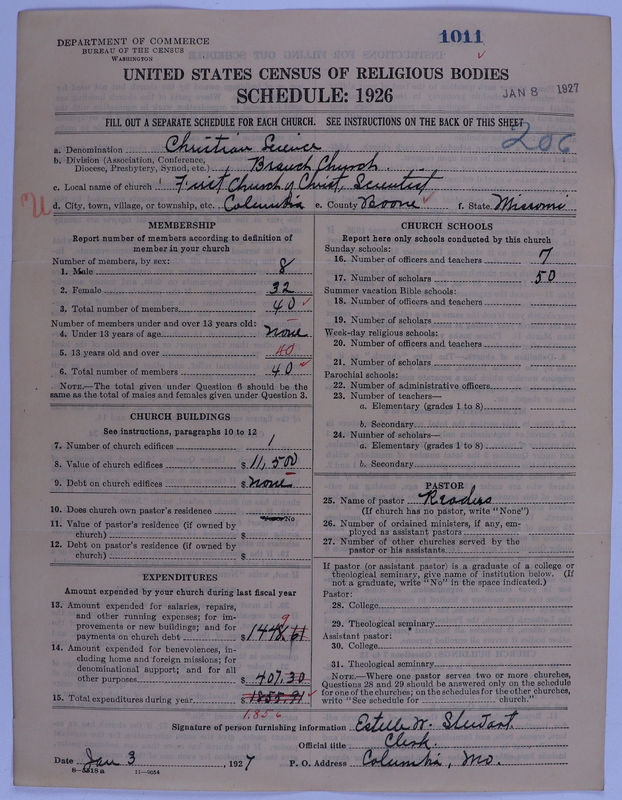 1011
DEPARTMENT OF COMMERCE
BUREAU OF THE CENSUS
WASHINGTON
UNITED STATES CENSUS OF RELIGIOUS BODIES
SCHEDULE: 1926
JAN 8 1927
FILL OUT A SEPARATE SCHEDULE FOR EACH CHURCH. SEE INSTRUCTIONS ON THE BACK OF THIS SHEET
206
a. Denomination Christian Science
b. Division (Association, Conference, Diocese, Presbytery, Synod, etc.) Branch Church
c. Local name of church First Church of Christ, Scientist
d. City, town, village, or township, etc. Columbia e. County Boone f. State Missouri
MEMBERSHIP
Report number of members according to definition of
member in your church
Number of members, by sex:
1. Male 8
2. Female 32
3. Total number of members 40
Number of members under and over 13 years old:
4. Under 13 years of age none
5. 13 years old and over 40
6. Total number of members 40
NOTE.—The total given under Question 6 should be the
same as the total of males and females given under Question 3.
CHURCH BUILDINGS
See instructions, paragraphs 10 to 12
7. Number of church edifices 1
8. Value of church edifices $ 11,500
9. Debt on church edifices $ none
10. Does church own pastor's residence No
11. Value of pastor's residence (if owned by
church) $
12. Debt on pastor's residence (if owned by
church) $
EXPENDITURES
Amount expended by your church during last fiscal year
13. Amount expended for salaries, repairs,
and other running expenses; for im-
provements or new buildings; and for
payments on church debt $ 1448.61
9
14. Amount expended for benevolences, in-
cluding home and foreign missions; for
denominational support; and for all
other purposes $ 407.30
15. Total expenditures during year $ 1855.91
1,856
CHURCH SCHOOLS
Report here only schools conducted by this church
Sunday schools:
16. Number of officers and teachers 7
17. Number of scholars 50
Summer vacation Bible schools:
18. Number of officers and teachers
19. Number of scholars
Week-day religious schools:
20. Number of officers and teachers
21. Number of scholars
Parochial schools:
22. Number of administrative officers
23. Number of teachers—
a. Elementary (grades 1 to 8)
b. Secondary
24. Number of scholars—
a. Elementary (grades 1 to 8)
b. Secondary
PASTOR
25. Name of pastor Readers
(If church has no pastor, write "None")
26. Number of ordained ministers, if any, em-
ployed as assistant pastors
27. Number of other churches served by the
pastor or his assistants
If pastor (or assistant pastor) is a graduate of a college or
theological seminary, give name of institution below. (If
not a graduate, write "No" in the space indicated.)
Pastor:
28. College
29. Theological seminary
Assistant pastor:
30. College
31. Theological seminary
NOTE.—Where one pastor serves two or more churches,
Questions 28 and 29 should be answered only on the schedule
for one of the churches; on the schedules for the other churches,
write "See schedule for church."
Signature of person furnishing information Estelle W. Stewart
Official title Clerk.
Date Jan 3, 1927 P. O. Address Columbia, Mo.
8—5518a 11—9054